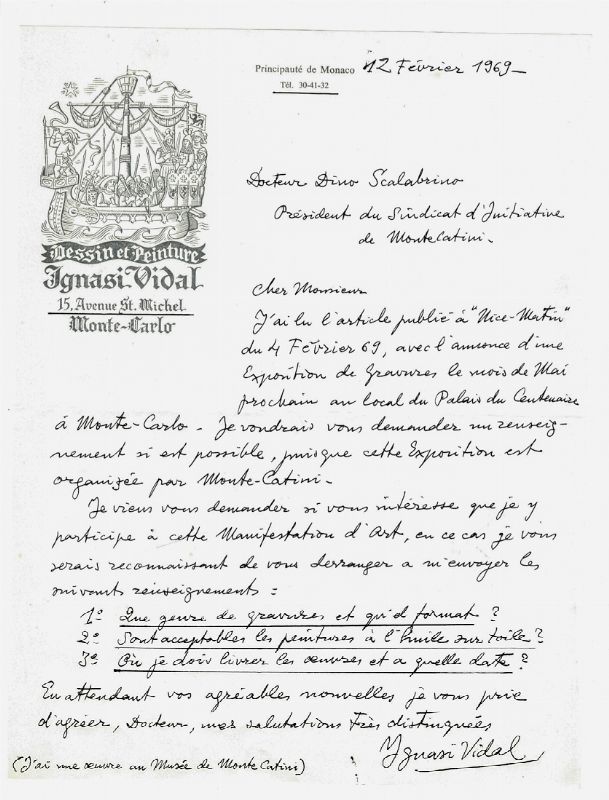 Principauté de Monaco
Tél. 30-41-32
12 Février 1969_
Dessin et Peinture
Ignasi Vidal
15, Avenue St. Michel
Monte-Carlo
Docteur Dino Scalabrino
Président du Sindicat d'Initiative
de MonteCatini_
Cher Monsieur
J'ai lu l'article publié à "Nice-Matin"
du 4 Février 69, avec l'annonce d'une
Exposition de Gravures le mois de Mai
prochain au local du Palais du Centenaire
à Monte-Carlo_ Je voudrais vous demander un renseig-
nement si est possible, puisque cette Exposition est
organizée par Monte-Catini_
Je viens vous demander si vous intéresse que je y
participe à cette Manifestation d'Art, en ce cas je vous
serais reconnaissant de vous derranger a m'envoyer les
suivants renseignements :
1º Que genre de gravures et qu'd format ?
2º Sont acceptables les peintures à l'huile sur toile ?
3º Où je dois livrer les œuvres et a quelle date ?
En attendant vos agréables nouvelles je vous prie
d'agréer, Docteur, mes salutations très distinguées
Ygnasi Vidal
(J'ai une œuvre au Musée de Monte Catini)